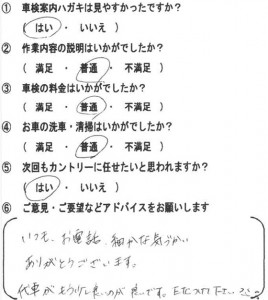 ① 車検案内ハガキは見やすかったですか？
（ はい ・ いいえ ）
② 作業内容の説明はいかがでしたか？
（ 満足 ・ 普通 ・ 不満足 ）
③ 車検の料金はいかがでしたか？
（ 満足 ・ 普通 ・ 不満足 ）
④ お車の洗車・清掃はいかがでしたか？
（ 満足 ・ 普通 ・ 不満足 ）
⑤ 次回もカントリーに任せたいと思われますか？
（ はい ・ いいえ ）
⑥ ご意見・ご要望などアドバイスをお願いします
いつも、お電話、細かな気づかい
ありがとうございます。
代車がもう少し良いのが良いです。ETCつけて下さい